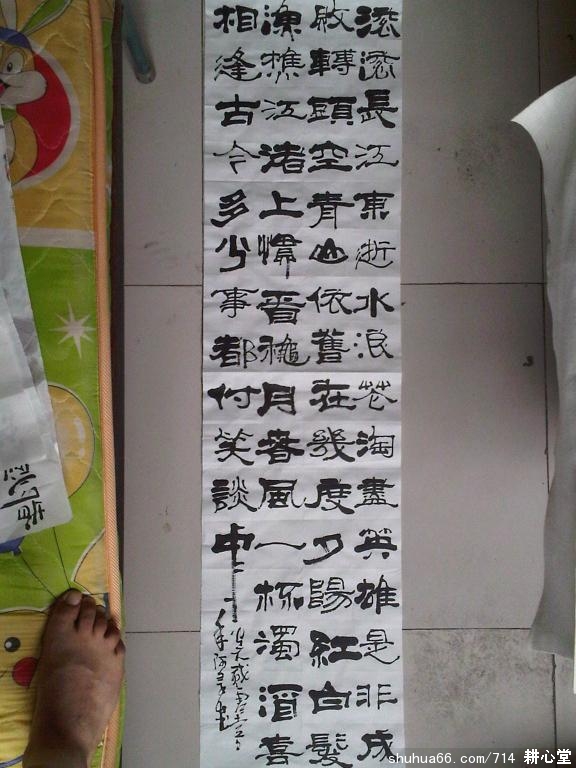 滚滚長江東逝水浪花淘盡英雄是非成
敗轉頭空青山依舊在幾度夕陽紅白髮
漁樵江渚上慣看穐月春風一杯濁酒喜
相逢古今多少事都付笑談中
shuhua66.com/714 耕心堂